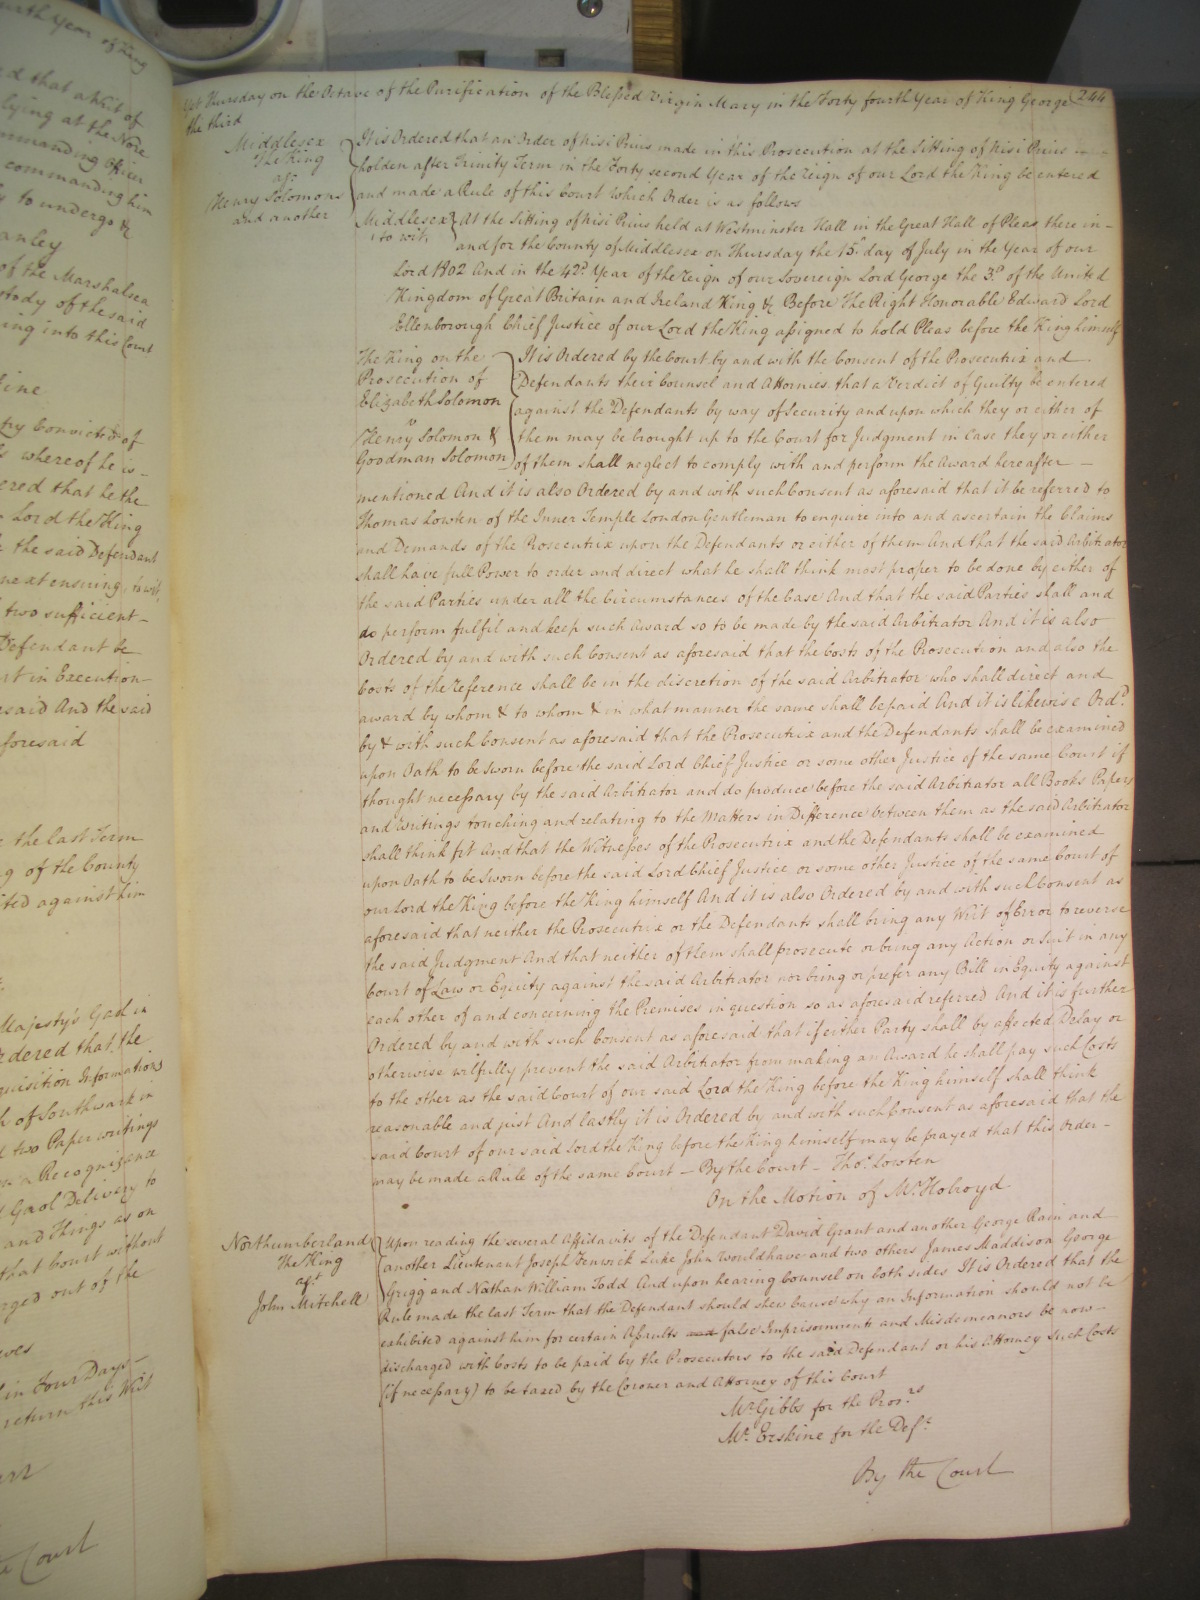 urth Year of King
rd that a Writ of
lying at the Nore
mmanding Officer
commanding him
to undergo &
anley
of the Marshalsea
stody of the said
ing into this Court
ine
ry Convicted of
s whereof he is
ered that he the
Lord the King
the said Defendant
next ensuing, to wit,
two sufficient
Defendant be
rt in Execution
esaid And the said
foresaid
the last Term
g of the County
ited against him
Majesty's Gaol in
rdered that, the
quisition Informations
h of Southwark in
two Paper writings
a Recognizance
Gaol Delivery to
and things as on
that Court without
rged out of the
in Four Days
return this Writ
Court
Yet Thursday on the Octave of the Purification of the Blessed Virgin Mary in the Forty fourth Year of King George 244
the third
Middlesex
The King
agt
Henry Solomons
and another
It is Ordered that an Order of Nisi Prius made in this Prosecution at the Sitting of Nisi Prius
holden after Trinity Term in the Forty second Year of the Reign of our Lord the King be entered
and made a Rule of this Court which Order is as follows
Middlesex to wit, At the Sitting of Nisi Prius held at Westminster Hall in the Great Hall of Pleas there in
and for the County of Middlesex on Thursday the 15th day of July in the Year of our
Lord 1802 And in the 42d Year of the Reign of our Sovereign Lord George the 3d of the United
Kingdom of Great Britain and Ireland King & Before The Right Honorable Edward Lord
Ellenborough Chief Justice of our Lord the King assigned to hold Pleas before the King himself
The King on the
Prosecution of
Elizabeth Solomon
v
Henry Solomon &
Goodman Solomon
It is Ordered by the Court by and with the Consent of the Prosecutrix and
Defendants their Counsel and Attornies that a Verdict of Guilty be entered
against the Defendants by way of Security and upon which they or either of
them may be brought up to the Court for Judgment in Case they or either
of them shall neglect to comply with and perform the Award hereafter
mentioned And it is also Ordered by and with such Consent as aforesaid that it be referred to
Thomas Lowten of the Inner Temple London Gentleman to enquire into and ascertain the Claims
and Demands of the Prosecutrix upon the Defendants or either of them And that the said Arbitrator
shall have full Power to order and direct what he shall think most proper to be done by either of
the said Parties under all the Circumstances of the Case And that the said Parties shall and
do perform fulfil and keep such Award so to be made by the said Arbitrator And it is also
Ordered by and with such Consent as aforesaid that the Costs of the Prosecution and also the
Costs of the Reference shall be in the discretion of the said Arbitrator who shall direct and
award by whom & to whom & in what manner the same shall be paid And it is likewise Ordd
by & with such Consent as aforesaid that the Prosecutrix and the Defendants shall be examined
upon Oath to be sworn before the said Lord Chief Justice or some other Justice of the same Court if
thought necessary by the said Arbitrator and do produce before the said Arbitrator all Books Papers
and Writings touching and relating to the Matters in Difference between them as the said Arbitrator
shall think fit And that the Witnesses of the Prosecutrix and the Defendants shall be examined
upon Oath to be Sworn before the said Lord Chief Justice or some other Justice of the same Court of
our Lord the King before the King himself And it is also Ordered by and with such Consent as
aforesaid that neither the Prosecutrix or the Defendants shall bring any Writ of Error to reverse
the said Judgment And that neither of them shall prosecute or bring any Action or Suit in any
Court of Law or Equity against the said Arbitrator nor bring or prefer any Bill in Equity against
each other of and concerning the Premises in question so as aforesaid referred And it is further
Ordered by and with such Consent as aforesaid that if either Party shall by affected Delay or
otherwise wilfully prevent the said Arbitrator from making an Award he shall pay such Costs
to the other as the said Court of our said Lord the King before the King himself shall think
reasonable and just And lastly it is Ordered by and with such Consent as aforesaid that the
said Court of our said Lord the King before the King himself may be prayed that this Order
may be made a Rule of the same Court — By the Court — Thos. Lowten
On the Motion of Mr. Holroyd
Northumberland
The King
agt
John Mitchell
Upon reading the several Affidavits of the Defendant David Grant and another George Rain and
another Lieutenant Joseph Fenwick Luke John Wouldhave and two others James Maddison George
Grigg and Nathan William Todd And upon hearing Counsel on both sides It is Ordered that the
Rule made the last Term that the Defendant should shew Cause why an Information should not be
exhibited against him for certain Assaults and false Imprisonments and Misdemeanors be now
discharged with Costs to be paid by the Prosecutors to the said Defendant or his Attorney Such Costs
(if necessary) to be taxed by the Coroner and Attorney of this Court
Mr. Gibbs for the Prors
Mr. Erskine for the Deft
By the Court